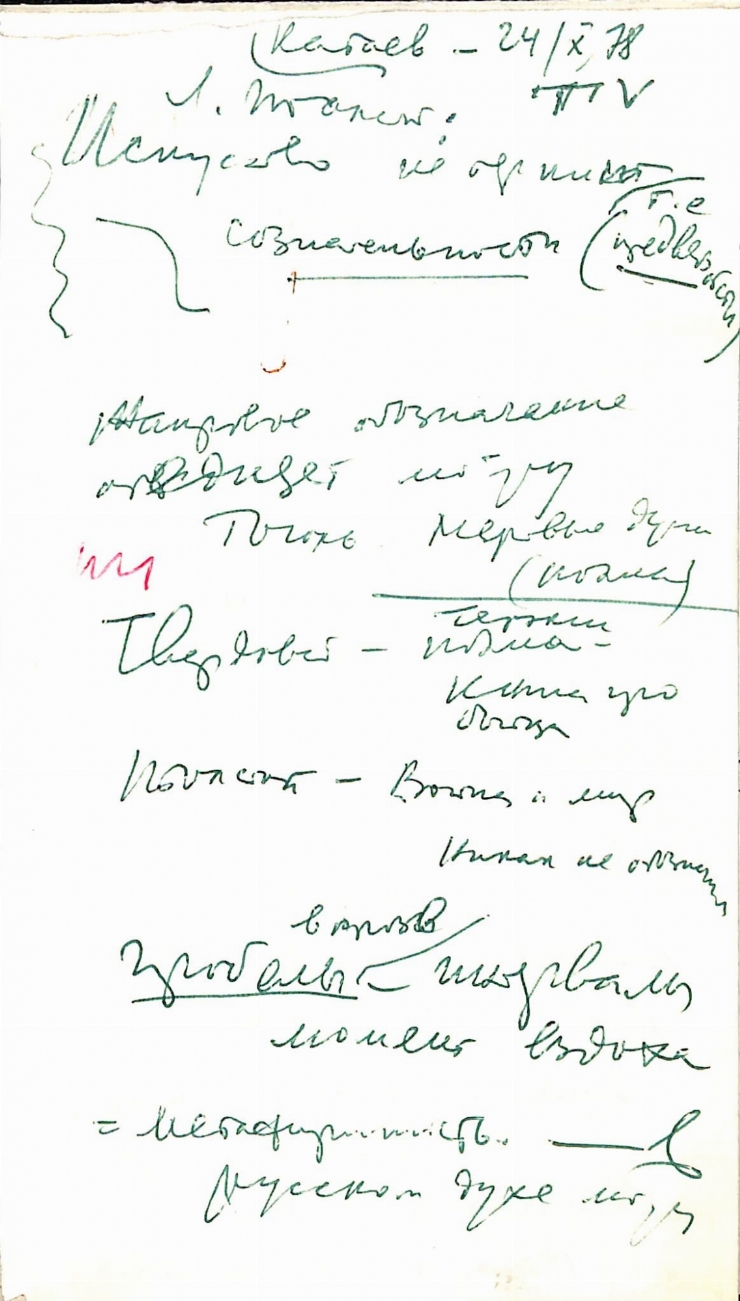 Катаев – 24/X, 78
Л. Толст. : TV
Искусство не
т.е
сознательности (предвзятости)
Жанровое обозначение
музу
Гоголь Мертвые души
(поэма)
Твардовский – Теркин
поэма –
Книга про
бойца
Толстой – Война и мир
Никак не обозначил
в прозе
Пробелы – интервалы
момент вздоха
= Метафоричность. — в
русском духе